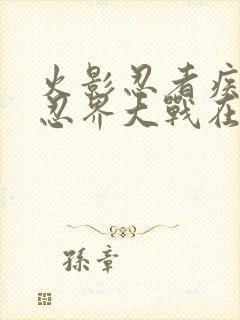 火影忍者疾
忍界大戰在
孫章